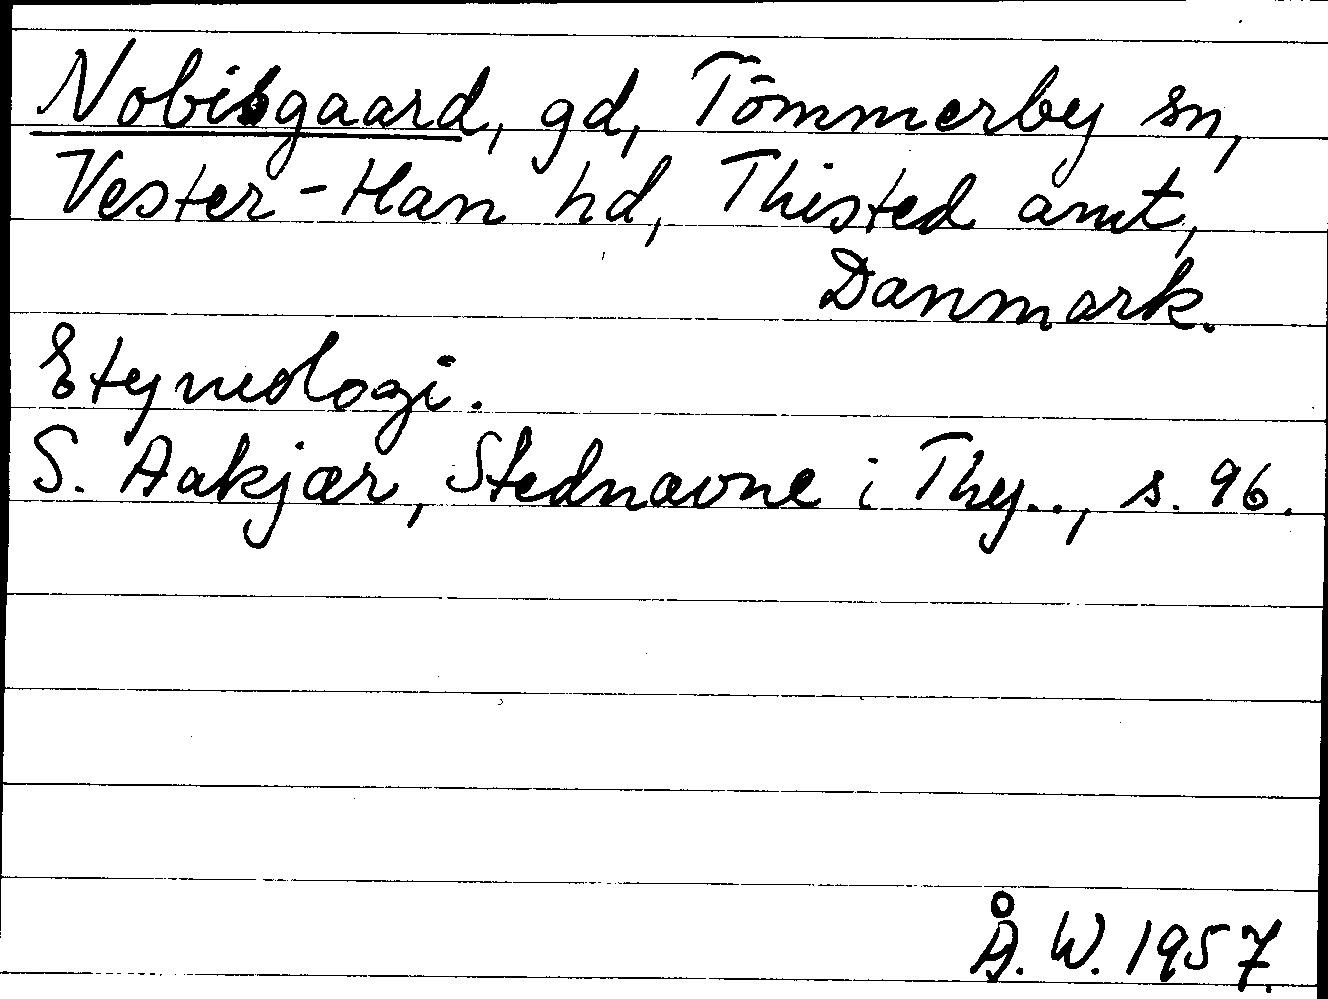 Nobisgaard, gd, Tömmerby sn,
Vester-Han hd, Thisted amt,
Danmark.
Etymologi.
S. Aakjær, Stednavne i Thy.., s. 96.
Å. W. 1957.